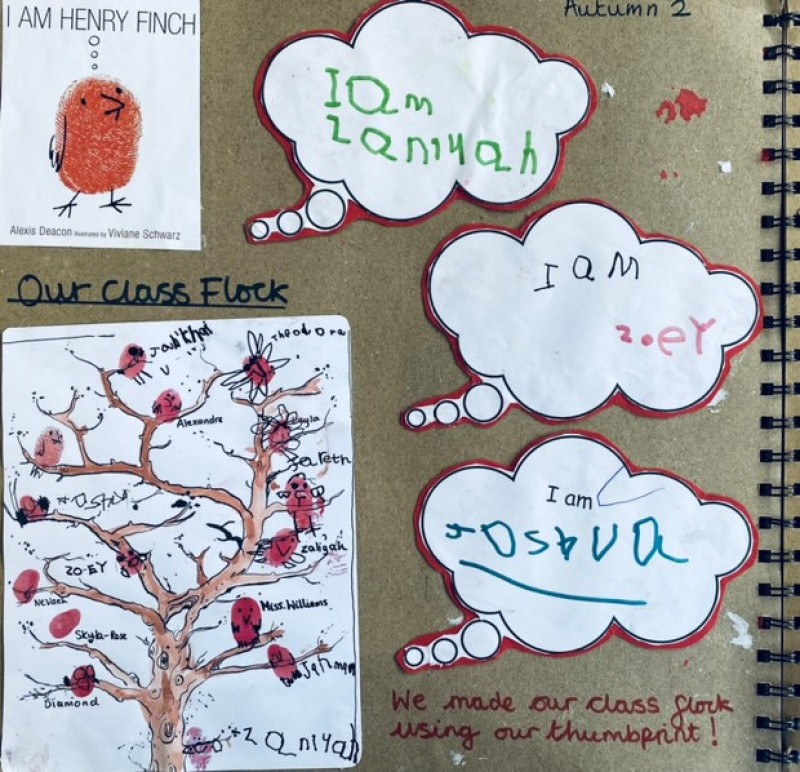 I AM HENRY FINCH
Alexis Deacon illustrated by Viviane Schwarz
Autumn 2
I am
zaniyah
I am
zoey
I am
Joshua
Our Class Flock
Theodora
Alexandre
Layla
Jareth
ZO-EY
Nevaeh
Skyla-Rose
Miss. Williams
Diamond
zaniyah
We made our class flock
using our thumbprint!